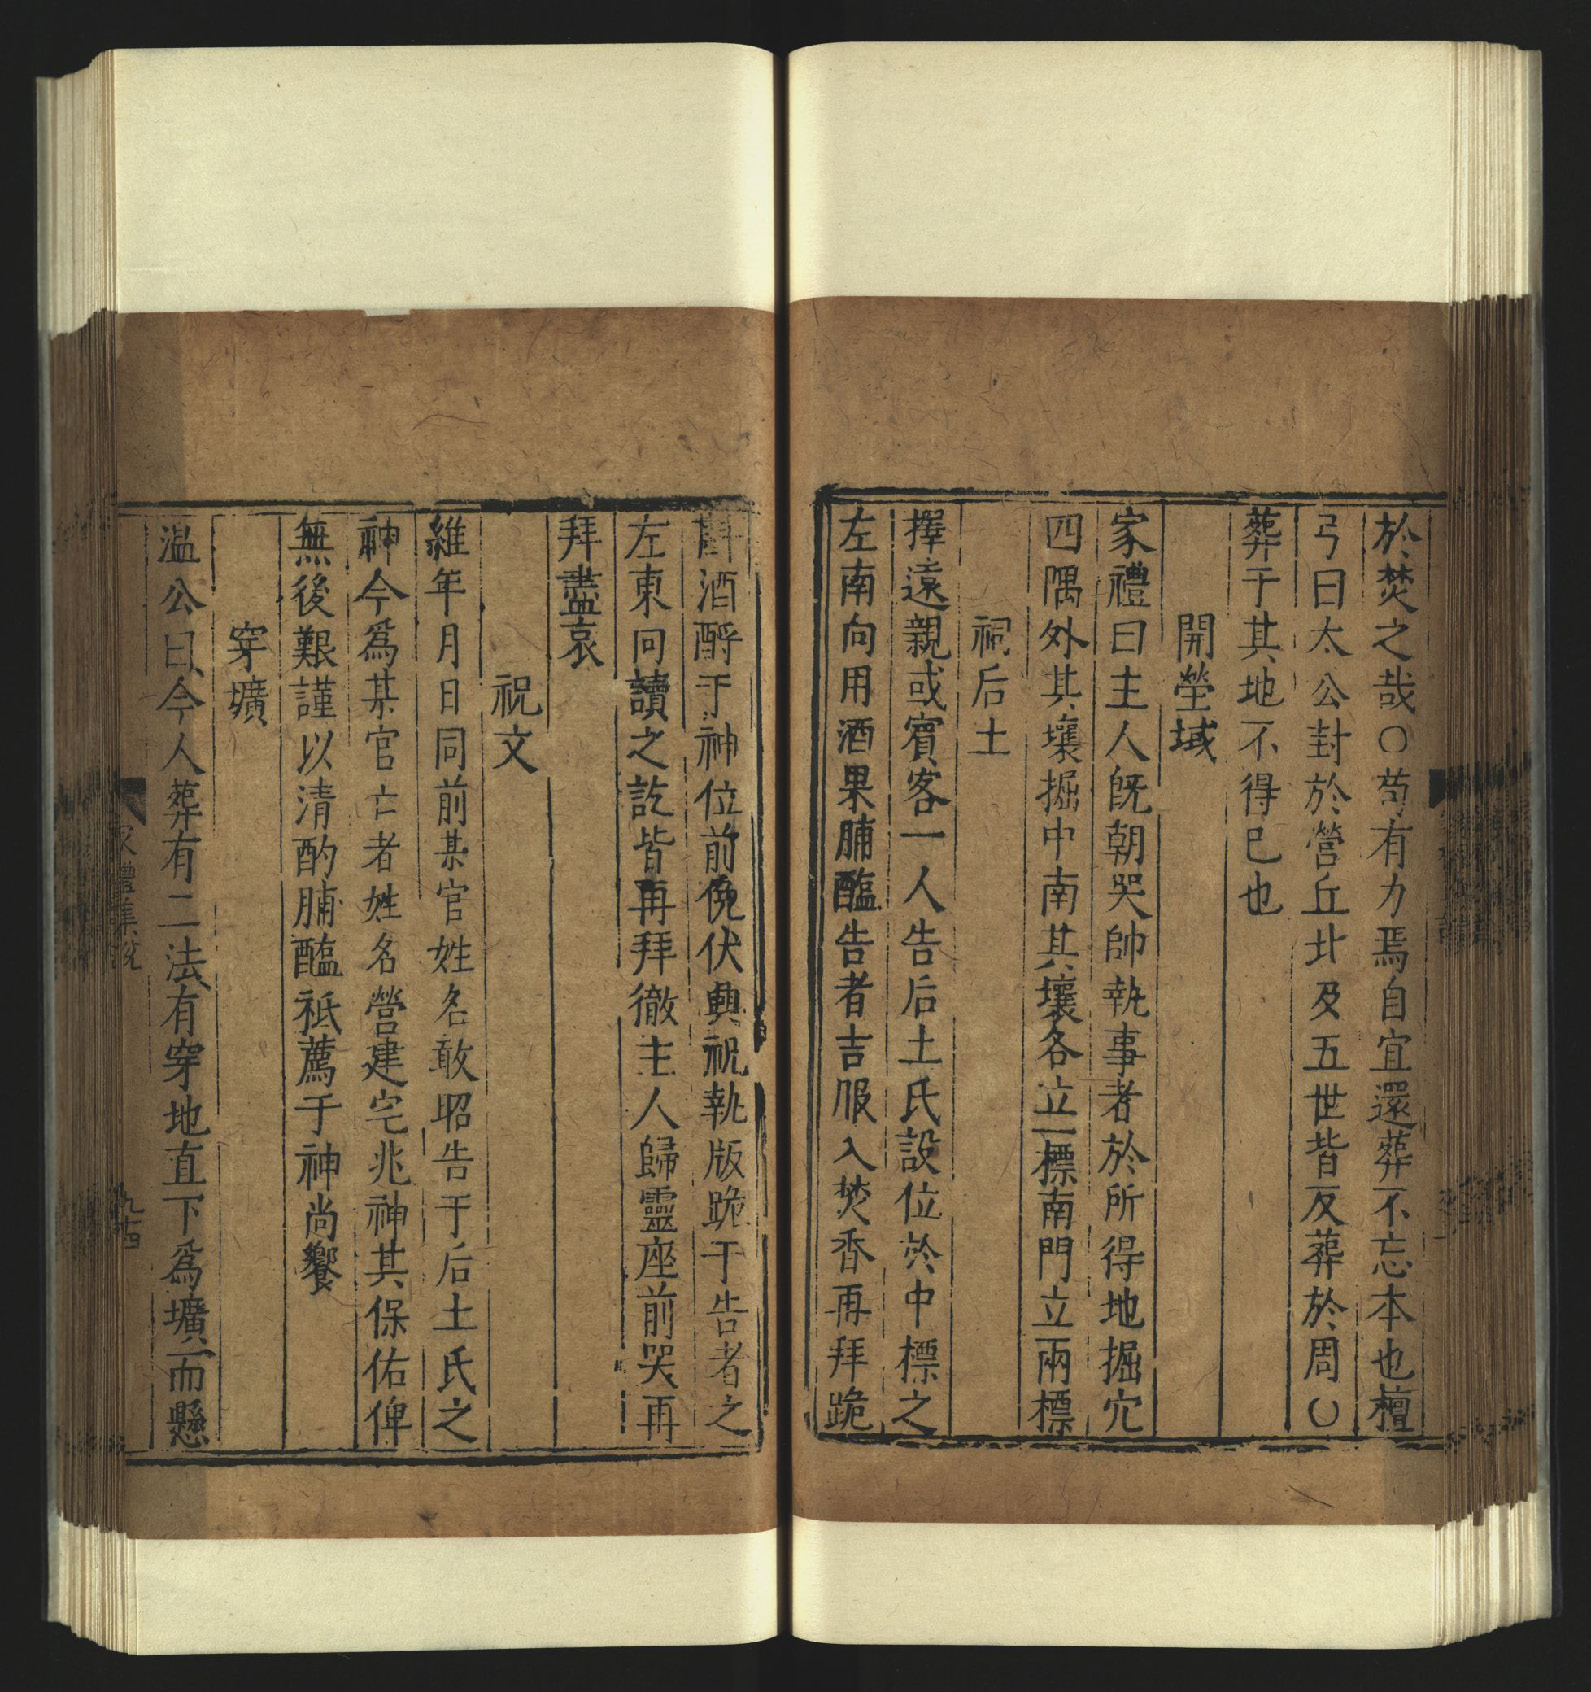 於焚之哉〇苟有力焉自宜還葬不忘本也檀
弓曰太公封於營丘北及五世皆反葬於周〇
葬于其地不得已也
開塋域
家禮曰主人既朝哭帥執事者於所得地掘穴
四隅外其壤掘中南其壤各立一標南門立兩標
祠后土
擇遠親或賓客一人告后土氏設位於中標之
左南向用酒果脯醢告者吉服入焚香再拜跪
斟酒酹于神位前俛伏興祝執版跪于告者之
左東向讀之訖皆再拜徹主人歸靈座前哭再
拜盡哀
祝文
維年月日同前某官姓名敢昭告于后土氏之
神今為某官亡者姓名營建宅兆神其保佑俾
無後艱謹以清酌脯醢祗薦于神尚饗
穿壙
温公曰今人葬有二法有穿地直下為壙而懸
家禮集說